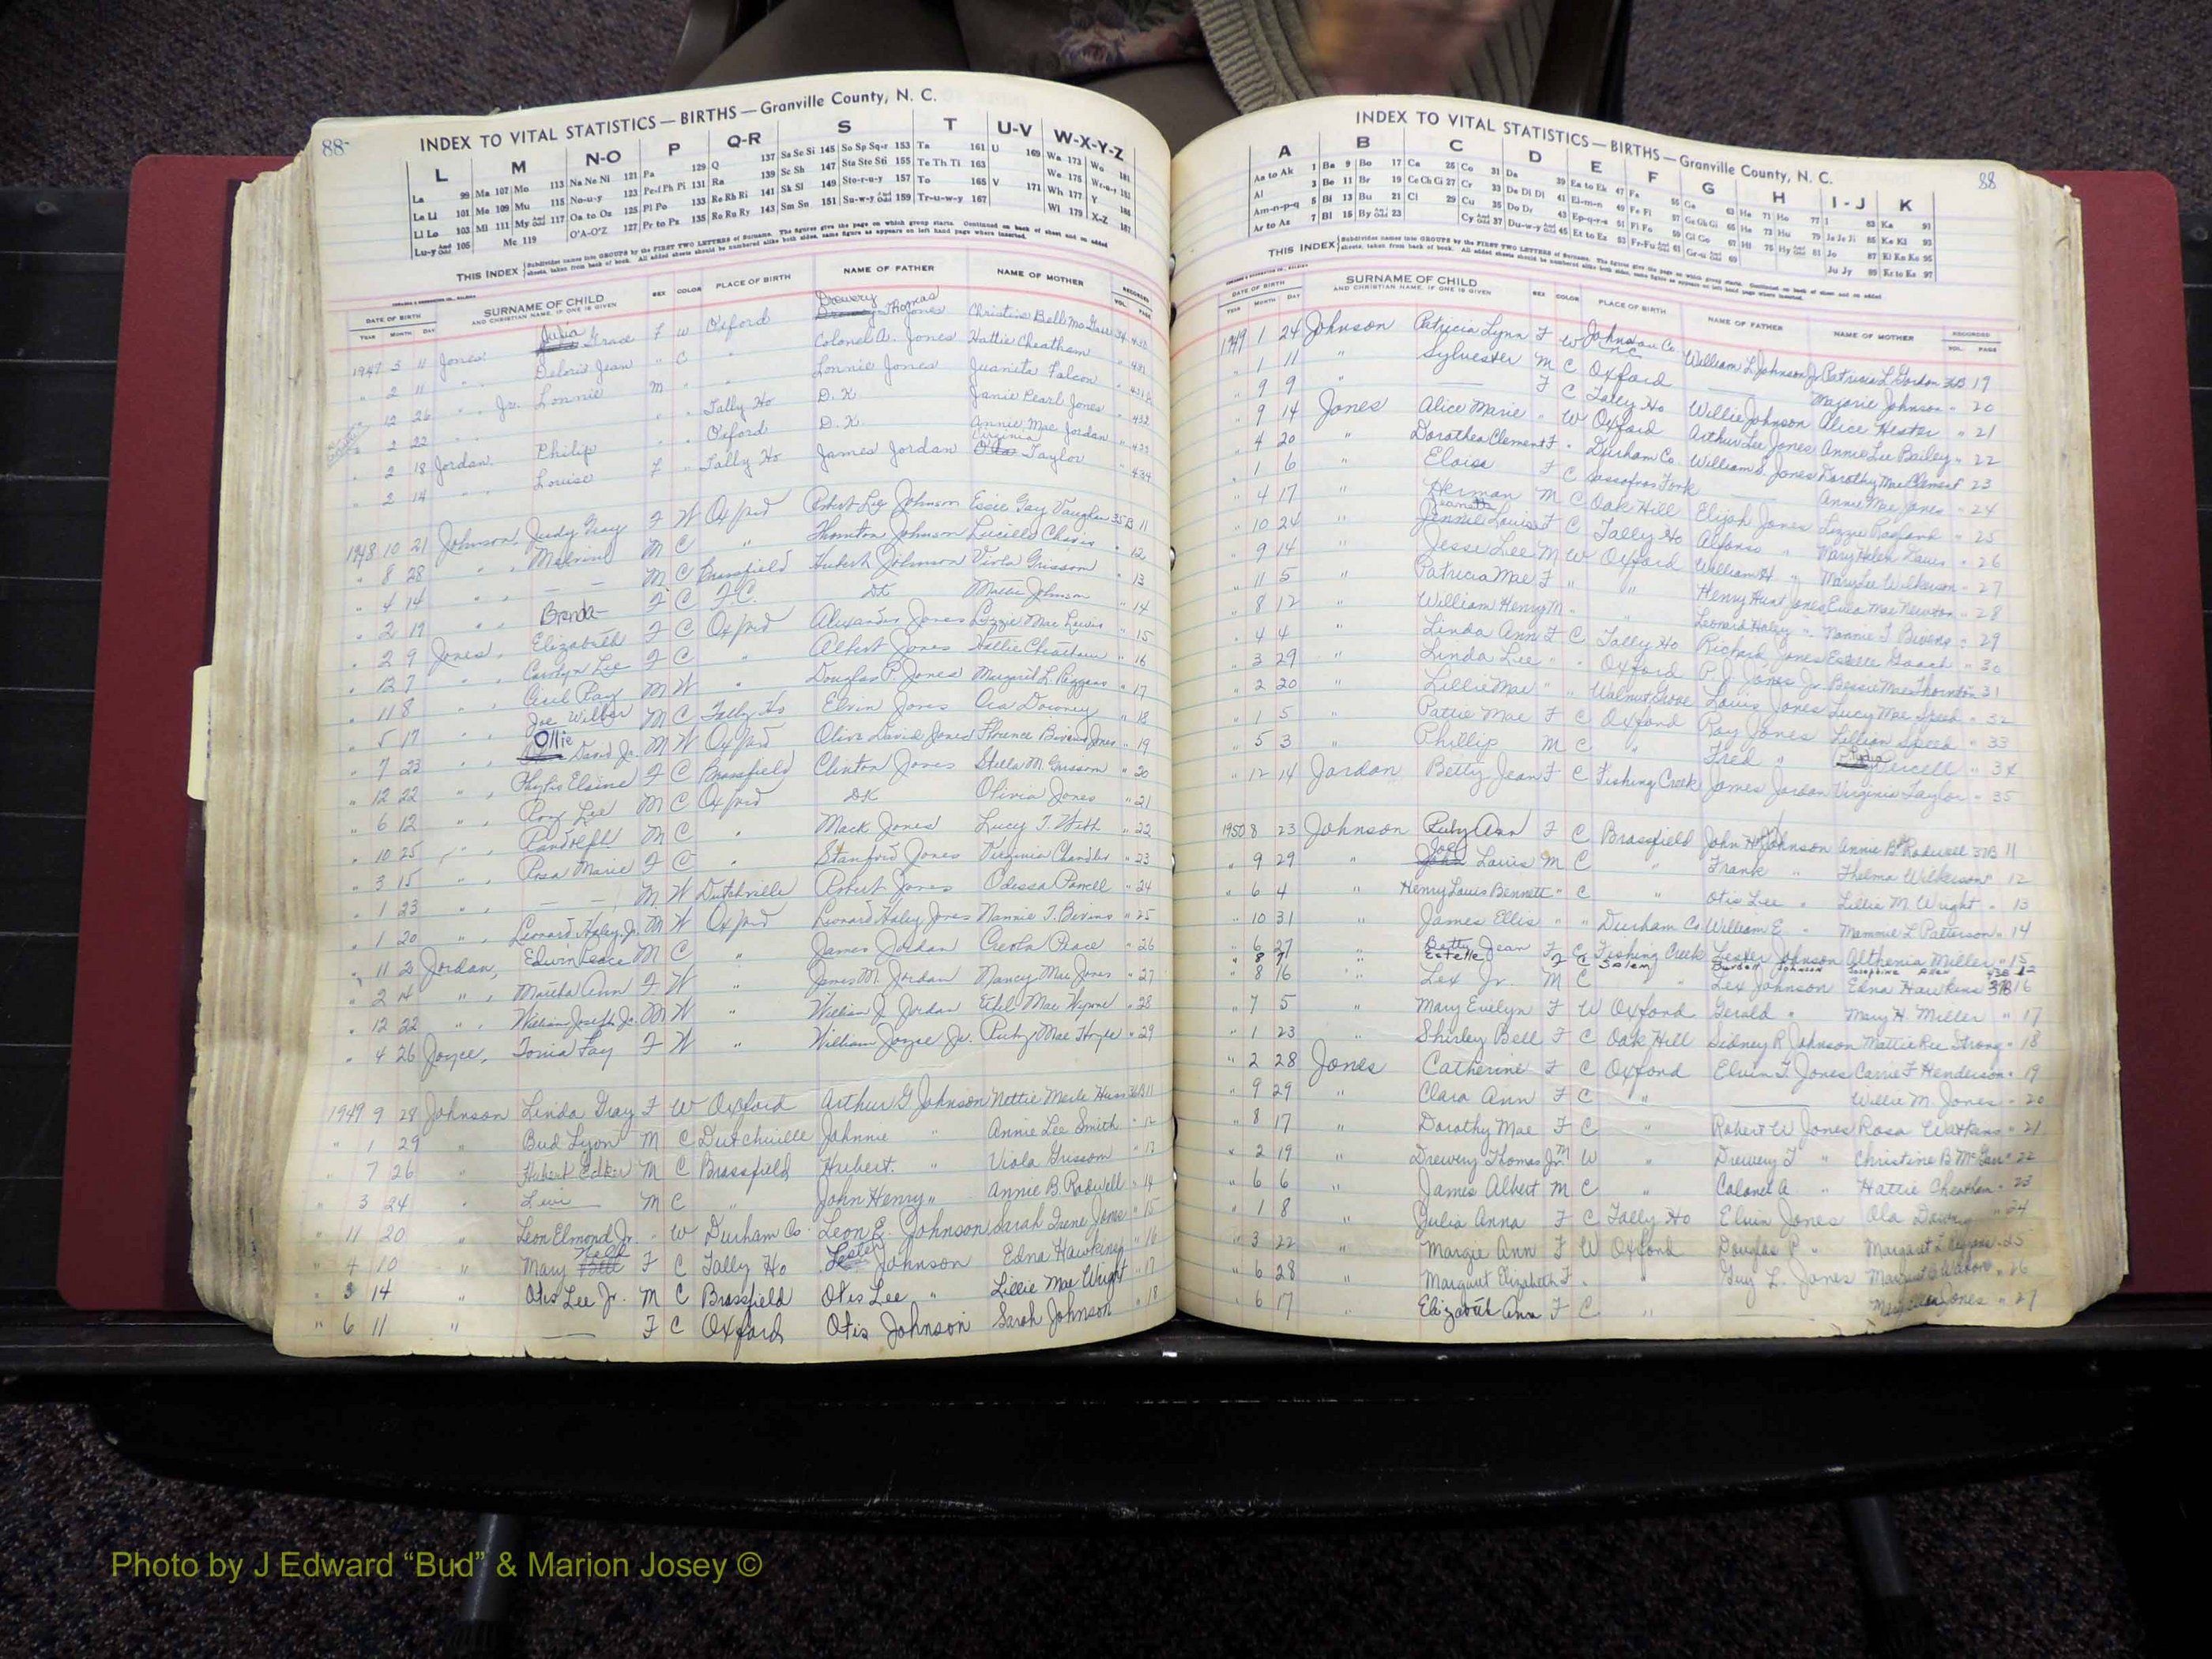 88
INDEX TO VITAL STATISTICS — BIRTHS — Granville County, N. C.
L M N-O P Q-R S T U-V W-X-Y-Z
La 99 Ma 107 Mo 113 Na Ne Ni 121 Pa 129 Q 137 Sa Sc Si 145 So Sp Sq-r 153 Ta 161 U 169 Wa 173 Wo 181
Le Li 101 Me 109 Mu 115 No-u-y 123 Pe-f Ph Pi 131 Ra 139 Se Sh 147 Sta Ste Sti 155 Te Th Ti 163 We 175
Ll Lo 103 Mi 111 My And Odd 117 Oa to Oz 125 Pl Po 133 Re Rh Ri 141 Sk Sl 149 Sto-r-u-y 157 To 165 V 171 Wh 177 Y
Lu-y And Odd 105 Mc 119 O'A-O'Z 127 Pr to Ps 135 Ro Ru Ry 143 Sm Sn 151 Su-w-y And Odd 159 Tr-u-w-y 167 Wi 179 X-Z 187
THIS INDEX Subdivides names into GROUPS by the FIRST TWO LETTERS of Surname. The figures give the page on which group starts. Continued on back of sheet and on added
sheets, taken from back of book. All added sheets should be numbered alike both sides, same figure as appears on left hand page where inserted.
DATE OF BIRTH SURNAME OF CHILD SEX COLOR PLACE OF BIRTH NAME OF FATHER NAME OF MOTHER RECORDED
YEAR MONTH DAY AND CHRISTIAN NAME, IF ONE IS GIVEN VOL. PAGE
1947 3 11 Jones Julia Grace F W Oxford Drewery Thomas Jones Christine Bell
" 2 11 " Deloris Jean " C " Colonel A. Jones Hattie Cheatham
" 12 26 " Jr. Lonnie M " " Lonnie Jones Juanita Falcon
" 2 22 " " " Tally Ho D.K. Janie Pearl Jones " 432
" 2 18 Jordan Philip " " Oxford D.K. Annie Mae Jordan " 433
" 2 14 " Louise F " Tally Ho James Jordan Virginia Taylor " 434
1948 10 21 Johnson, Judy Gray F W Oxford Robert Lee Johnson Essie Gay Vaughan 35B 11
" 8 28 " M C " Thornton Johnson Lucille Chavis " 12
" 4 14 " — M C Brassfield Hubert Johnson Viola Grissom " 13
" 2 19 " Brenda F C F.C. DK Mattie Johnson " 14
" 2 9 Jones, Elizabeth F C Oxford Alexander Jones Lizzie Mae Lewis " 15
" 12 7 " Carolyn Lee F C " Albert Jones Hattie Cheatham " 16
" 11 8 " Cecil Ray M W " Douglas P. Jones Margaret L. " 17
" 5 17 " Joe Wilber M C Tally Ho Elvin Jones Ora Downey " 18
" 7 23 " Ollie David Jr. M W Oxford Olive David Jones Florence Jones " 19
" 12 22 " Phylis Elaine F C Brassfield Clinton Jones Stella M. Grissom " 20
" 6 12 " Roy Lee M C Oxford DK Olivia Jones " 21
" 10 25 " Randolph M C " Mack Jones Lucy T. Webb " 22
" 3 15 " Rosa Marie F C " Stanford Jones Virginia Chandler " 23
" 1 23 " — — M W Dutchville Robert Jones Odessa Powell " 24
" 1 20 " Leonard Haley, Jr. M W Oxford Leonard Haley Jones Nannie T. Bivins " 25
" 11 2 Jordan, Edwin Peace M C " James Jordan Creola Peace " 26
" 2 4 " Martha Ann F W " James M. Jordan Nancy Mae Jones " 27
" 12 22 " William Joseph Jr. M W " William J. Jordan Ethel Mae Wynne " 28
" 4 26 Joyce, Tonia Fay F W " William Joyce Jr. Ruby Mae Hoyle " 29
1949 9 28 Johnson Linda Gray F W Oxford Arthur G Johnson Nettie Merle 36B 11
" 1 29 " Bud Lyon M C Dutchville Johnnie " Annie Lee Smith " 12
" 7 26 " Hubert M C Brassfield Hubert " Viola Grissom " 13
" 3 24 " Levi M C " John Henry " Annie B. Rodwell " 14
" 11 20 " Leon Elmond Jr. " W Durham Co. Leon E. Johnson Sarah Irene Jones " 15
" 4 10 " Mary F C Tally Ho Lester Johnson Edna Hawkins " 16
" 3 14 " Otis Lee Jr. M C Brassfield Otis Lee " Lillie Mae Wright " 17
" 6 11 " — F C Oxford Otis Johnson Sarah Johnson " 18
88
INDEX TO VITAL STATISTICS — BIRTHS — Granville County, N. C.
A B C D E F G H I-J K
Aa to Ak 1 Ba 9 Bo 17 Ca 25 Co 31 Da 39 Ea to Ek 47 Fa 55 Ga 63 Ha 71 Ho 77 I 83 Ka 91
Al 3 Be 11 Br 19 Ce Ch Ci 27 Cr 33 De Di Dl 41 El-m-n 49 Fe Fi 57 Ge Gh Gi 65 He 73 Hu 79 Ja Je Ji 85 Ke Kl 93
Am-n-p-q 5 Bi 13 Bu 21 Cl 29 Cu 35 Do Dr 43 Ep-q-r-s 51 Fl Fo 59 Gl Go 67 Hi 75 Hy And Odd 81 Jo 87 Kl Kn Ko 95
Ar to As 7 Bl 15 By And Odd 23 Cy And Odd 37 Du-w-y And Odd 45 Et to Ez 53 Fr-Fu And Odd 61 Gr-u And Odd 69 Ju Jy 89 Kr to Ks 97
THIS INDEX Subdivides names into GROUPS by the FIRST TWO LETTERS of Surname. The figures give the page on which group starts. Continued on back of sheet and on added
sheets, taken from back of book. All added sheets should be numbered alike both sides, same figure as appears on left hand page where inserted.
DATE OF BIRTH SURNAME OF CHILD SEX COLOR PLACE OF BIRTH NAME OF FATHER NAME OF MOTHER RECORDED
YEAR MONTH DAY AND CHRISTIAN NAME, IF ONE IS GIVEN VOL. PAGE
1949 1 24 Johnson Patricia Lynn F W Johnston Co. NC William L Johnson Jr Patricia L Gordon 36B 19
" 1 11 " Sylvester M C Oxford — Marjorie Johnson " 20
" 9 9 " — F C Tally Ho Willie Johnson Alice Hester " 21
" 9 14 Jones Alice Marie " W Oxford Arthur Lee Jones Annie Lee Bailey " 22
" 4 20 " Dorothea Clement F " Durham Co. William S. Jones Dorothy Mae Clement 23
" 1 6 " Eloise F C Sassafras Fork — Annie Mae Jones " 24
" 4 17 " Herman M C Oak Hill Elijah Jones Lizzie " 25
" 10 24 " Jennie Louise F C Tally Ho Alfonso " Mary Helen " 26
" 9 14 " Jesse Lee M W Oxford William H " Marylee Wilkerson " 27
" 11 5 " Patricia Mae F " " Henry Hunt Jones Eula Mae Newton " 28
" 8 12 " William Henry M " " Leonard Haley " Nannie T Bivens " 29
" 4 4 " Linda Ann F C Tally Ho Richard Jones Estelle Gooch " 30
" 3 29 " Linda Lee " " Oxford P. J. Jones Jr Bessie Mae Thornton 31
" 2 20 " Lillie Mae " " Walnut Grove Louis Jones Lucy Mae Speed " 32
" 1 5 " Pattie Mae F C Oxford Roy Jones Lillian Speed " 33
" 5 3 " Phillip M C " Fred " " 34
" 12 14 Jordan Betty Jean F C Fishing Creek James Jordan Virginia Taylor " 35
1950 8 23 Johnson Ruby Ann F C Brassfield John H Johnson Annie B Rodwell 37B 11
" 9 29 " Joe Louis M C " Frank " Thelma Wilkerson " 12
" 6 4 " Henry Louis Bennett " C " Otis Lee " Lillie M. Wright " 13
" 10 31 " James Ellis " " Durham Co William E " Mammie L Patterson " 14
" 6 27 " Betty Jean F C Fishing Creek Lester Johnson Althenia Miller " 15
" 8 7 Estelle F C Salem Johnson Josephine
" 8 16 " Lex Jr. M C " Lex Johnson Edna Hawkins 37B 16
" 7 5 " Mary Evelyn F W Oxford Gerald " Mary H. Miller " 17
" 1 23 " Shirley Bell F C Oak Hill Sidney R Johnson Mattie Ree Strong " 18
" 2 28 Jones Catherine F C Oxford Elvin T. Jones Carrie F Henderson " 19
" 9 29 " Clara Ann F C " — Willie M. Jones " 20
" 8 17 " Dorothy Mae F C " Robert W Jones Rosa Watkins " 21
" 2 19 " Drewery Thomas Jr. M W " Drewery T " Christine B McGee " 22
" 6 6 " James Albert M C " Colonel A. " Hattie Cheatham " 23
" 1 8 " Julia Anna F C Tally Ho Elvin Jones Ola " 24
" 3 22 " Margie Ann F W Oxford Douglas P " Margaret L " 25
" 6 28 " Margaret Elizabeth F " " Guy L. Jones Margaret " 26
" 6 17 " Elizabeth Ann F C " Jones " 27
Photo by J Edward “Bud” & Marion Josey ©